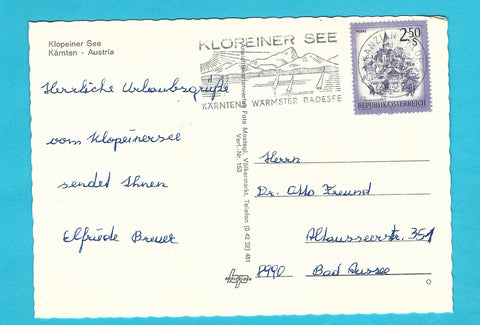 Klopeiner See
Kärnten - Austria
Herrliche Urlaubsgrüße
vom Klopeinersee
sendet Ihnen
Elfriede Breuer
Foto Mostegl, Völkermarkt, Telefon (0 42 32) 481
Verl.-Nr. 153
KLOPEINER SEE
KÄRNTENS WÄRMSTER BADESEE
2.50
S
REPUBLIK ÖSTERREICH
Herrn
Dr. Otto Freund
Altausseerstr. 351
8990 Bad Aussee